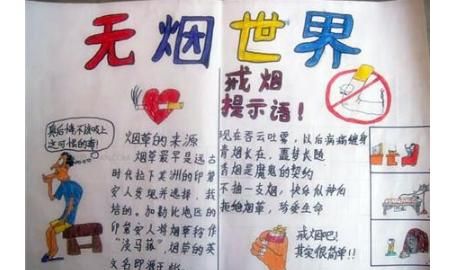 无烟世界
戒烟
提示语！
真后悔不该吸上
这可恨的毒！
烟草的来源
烟草最早是远古
时代拉丁美洲的印第
安人发现并选择，栽
培的。加勒比地区的
印第安人将烟草称作
烟草的英
文名即源于
现在吞云吐雾，以后病痛缠身
青烟长在，噩梦长随
香烟是魔鬼的契约
不抽一支烟，快乐似神仙
拒绝烟草，珍爱生命
戒烟吧！
其实很简单！！